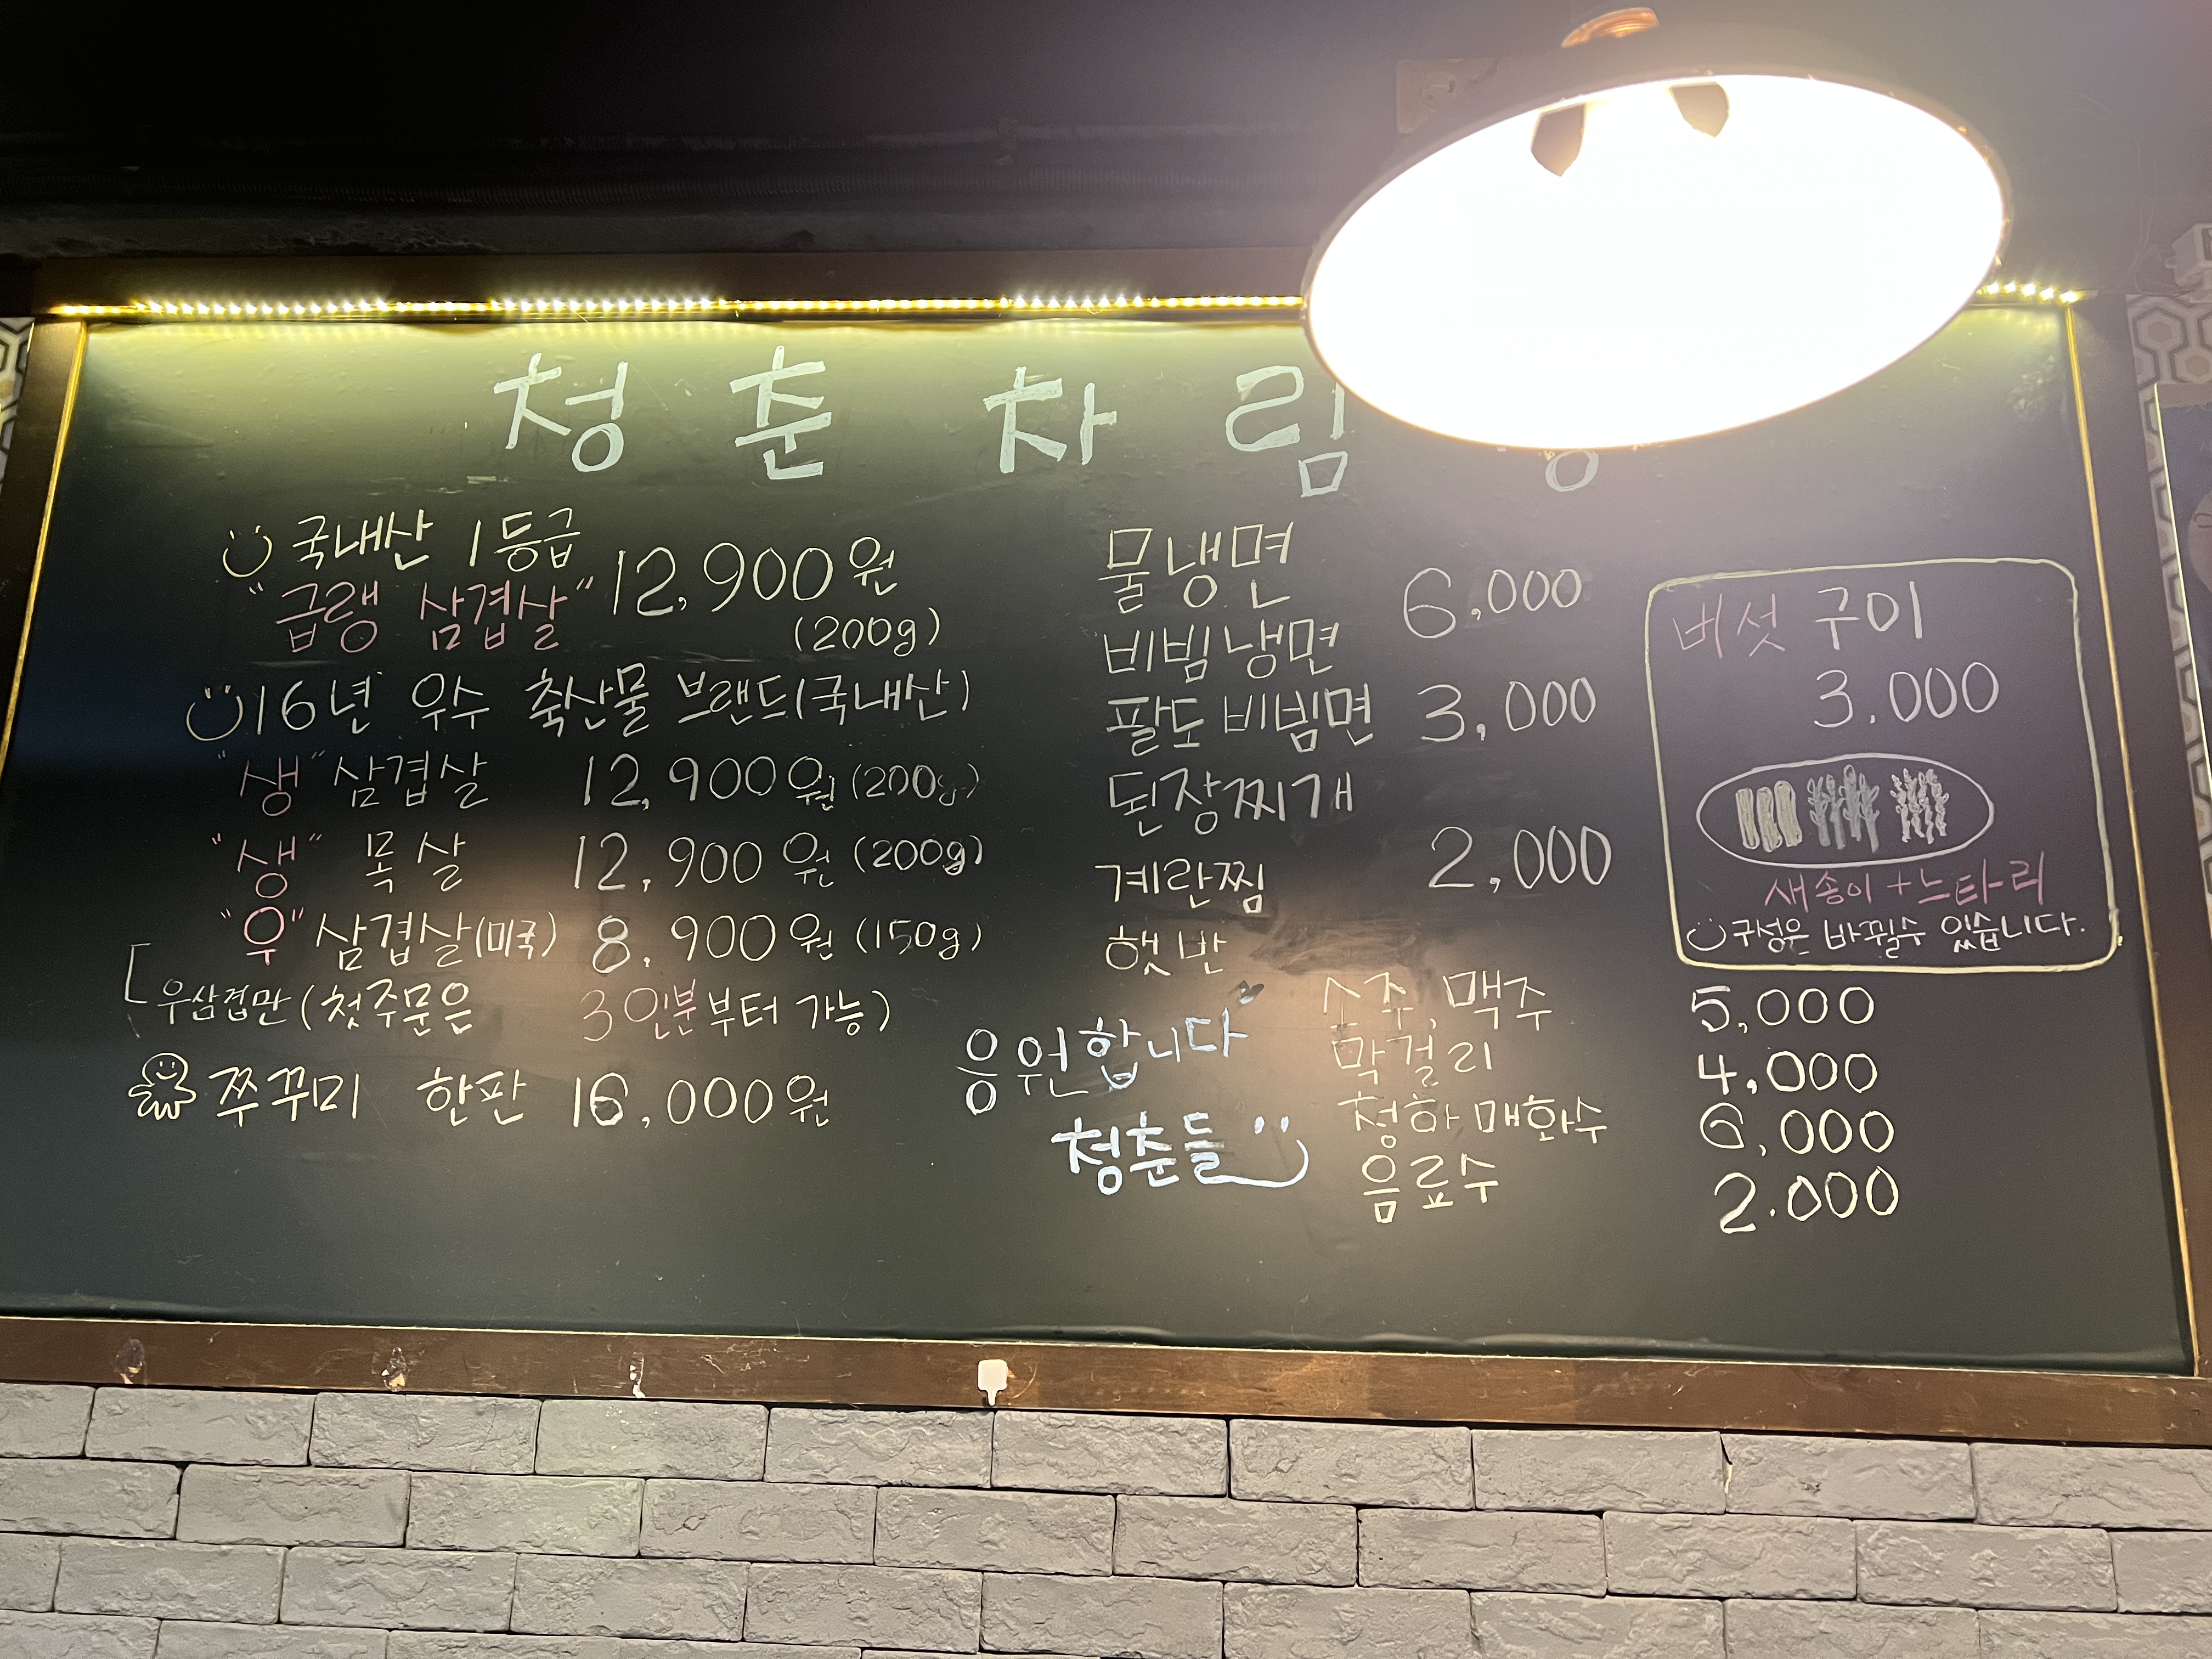 청춘차림
국내산 1등급
"급랭 삼겹살" 12,900원
(200g)
16년 우수 축산물 브랜드(국내산)
"생" 삼겹살 12,900원 (200g)
"생" 목살 12,900원 (200g)
"우" 삼겹살(미국) 8,900원 (150g)
우삼겹만 (첫주문은 3인분부터 가능)
쭈꾸미 한판 16,000원
물냉면
비빔냉면 6,000
팔도비빔면 3,000
된장찌개
계란찜 2,000
햇반
버섯 구이
3.000
새송이+느타리
구성은 바뀔수 있습니다.
응원합니다
청춘들
소주, 맥주 5,000
막걸리 4,000
청하 매화수 6,000
음료수 2.000